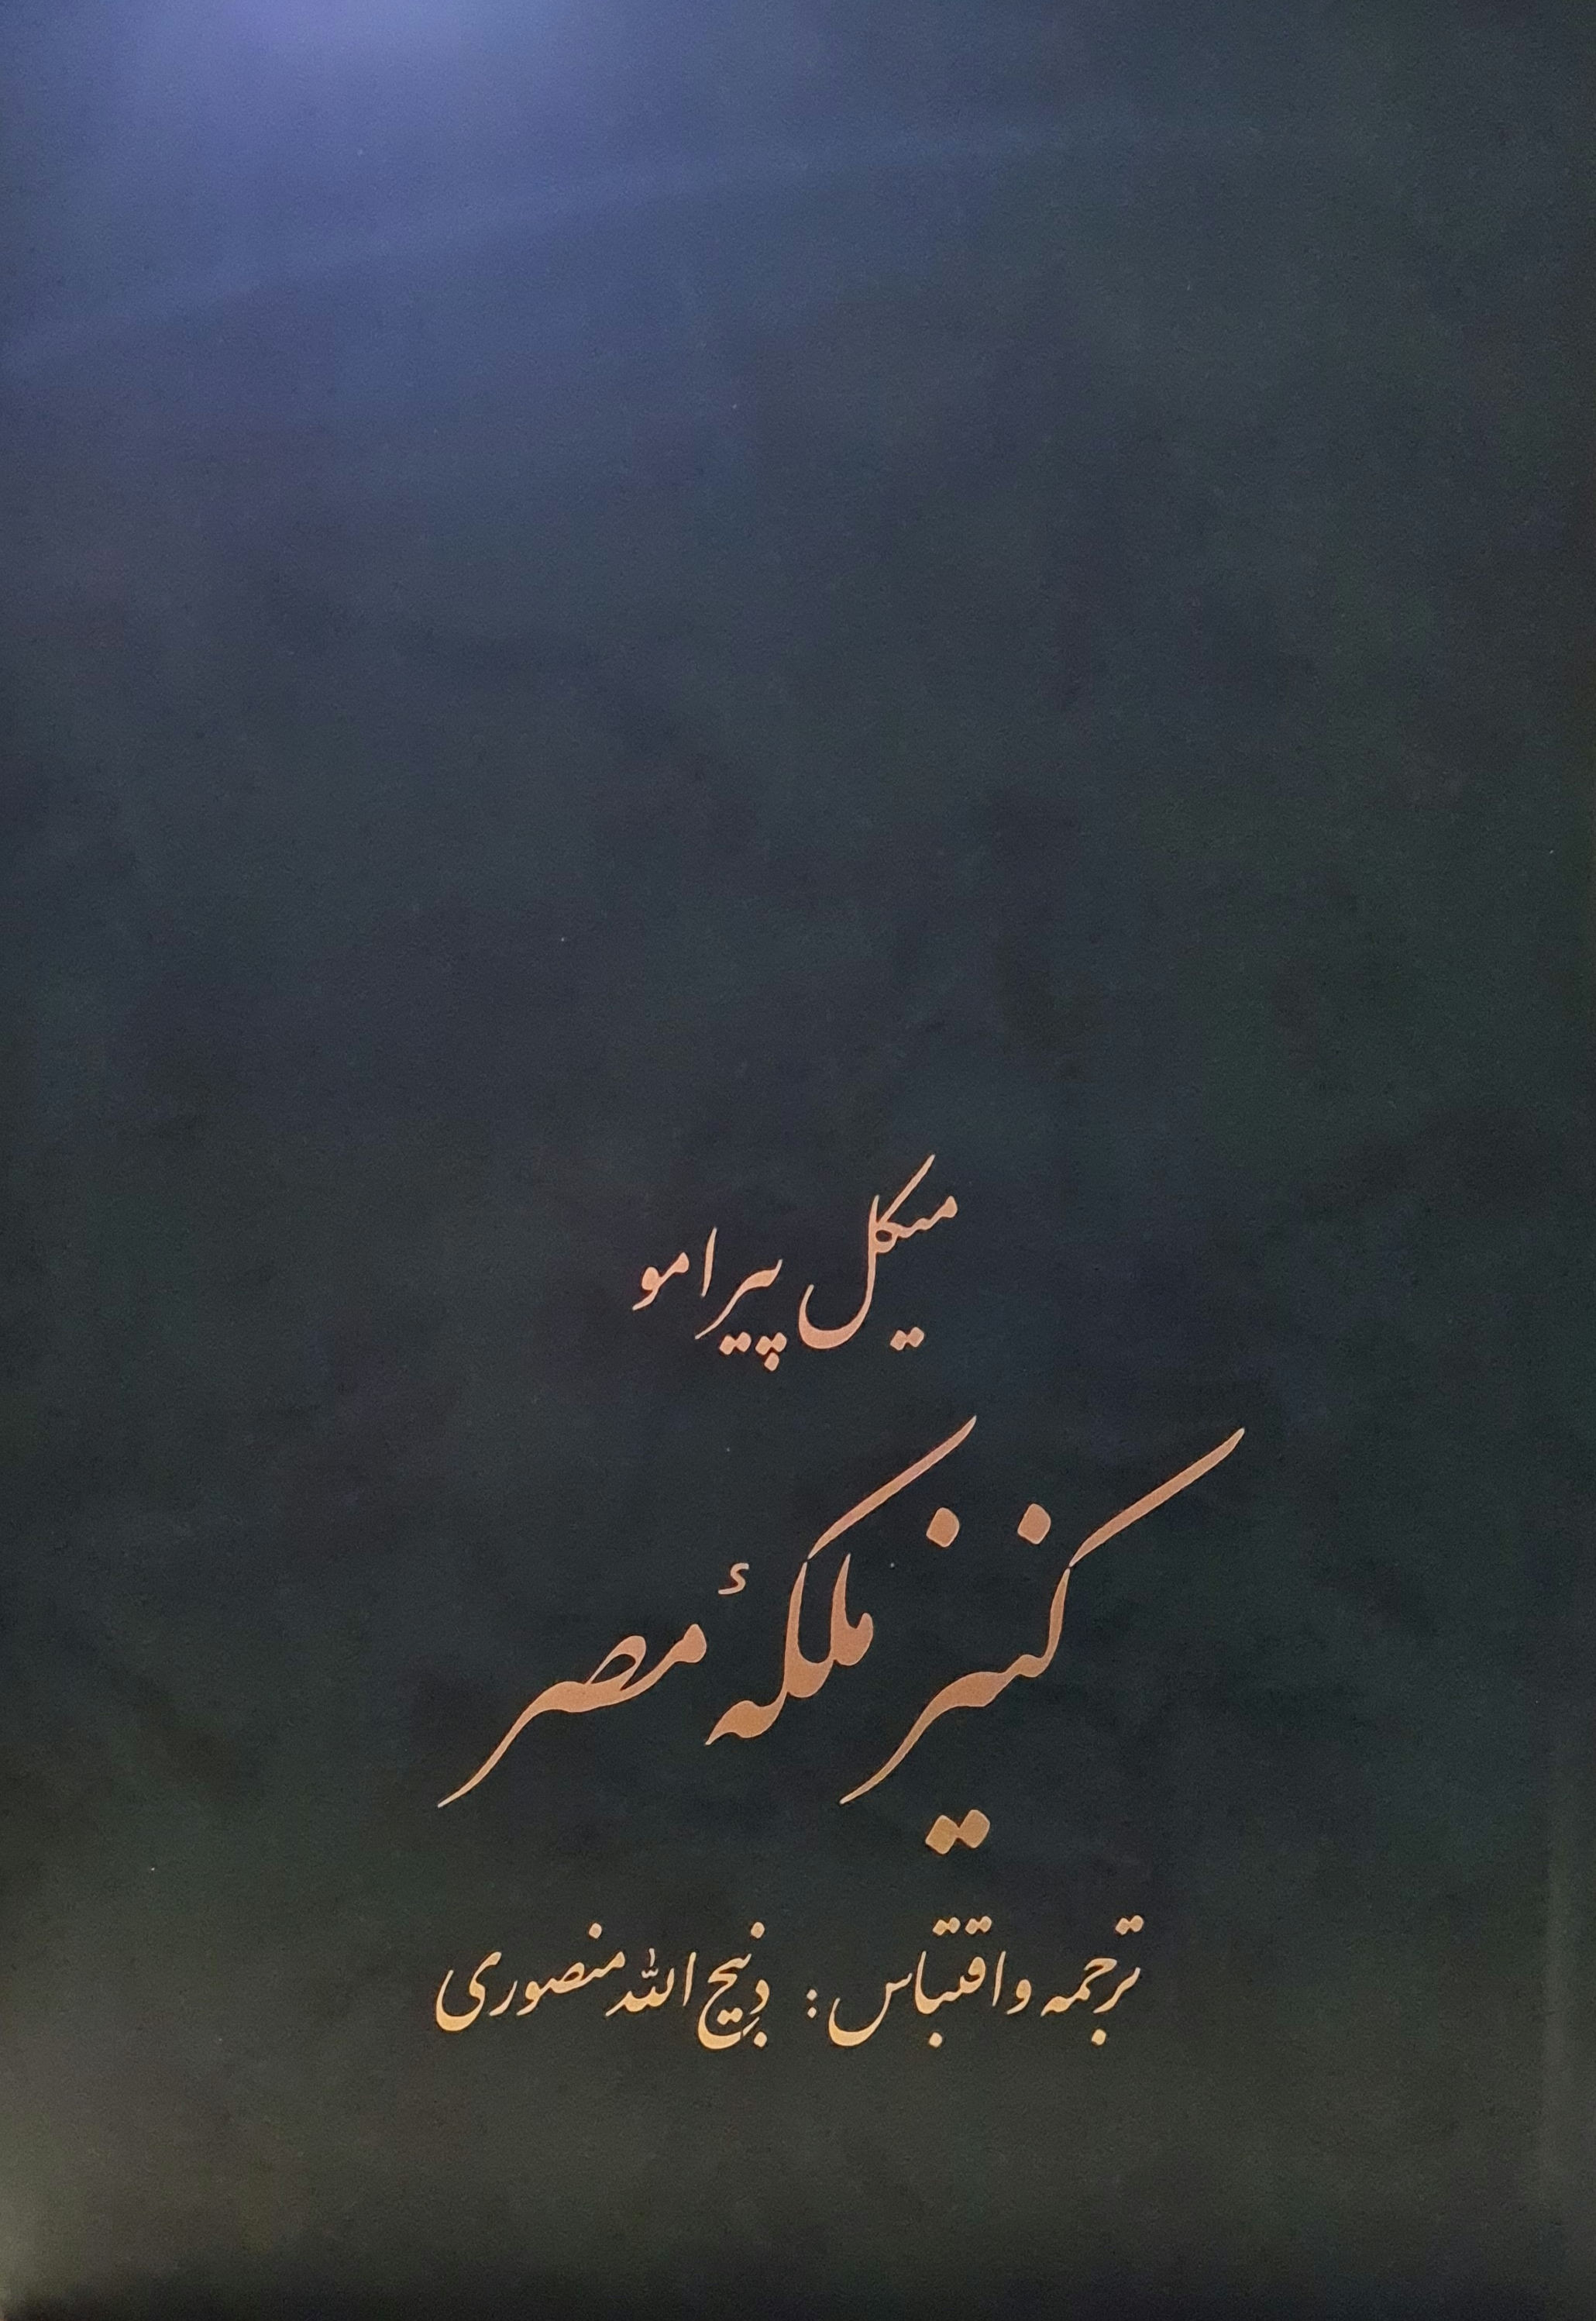 میکل پیرامو
کنیز ملکهٔ مصر
ترجمه و اقتباس : ذبیح الله منصوری